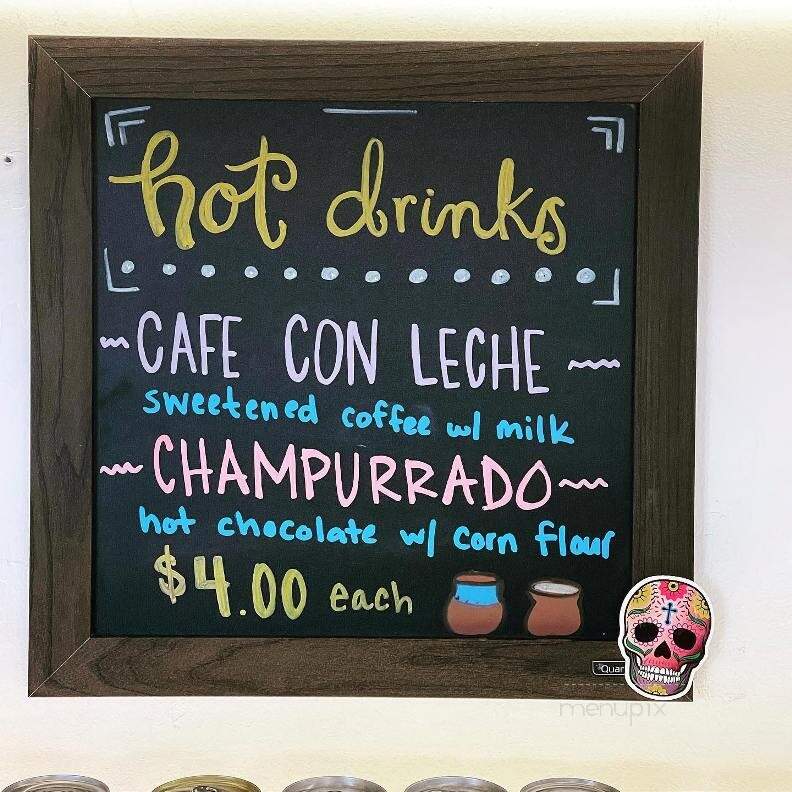 hot drinks
CAFE CON LECHE
sweetened coffee w/ milk
CHAMPURRADO
hot chocolate w/ corn flour
$4.00 each
Quar
menupix